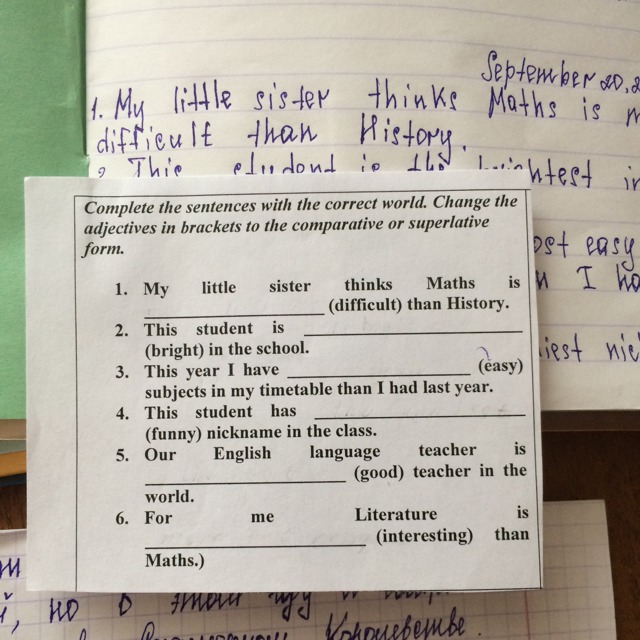 September 20,
1. My little sister thinks Maths is
difficult than History.
2. This student is the brightest in
Complete the sentences with the correct world. Change the
adjectives in brackets to the comparative or superlative
form.
1. My little sister thinks Maths is
____________________ (difficult) than History.
2. This student is ____________________
(bright) in the school.
3. This year I have ____________________ (easy)
subjects in my timetable than I had last year.
4. This student has ____________________
(funny) nickname in the class.
5. Our English language teacher is
____________________ (good) teacher in the
world.
6. For me Literature is
____________________ (interesting) than
Maths.)
easy
I
но в этом
Королевстве.